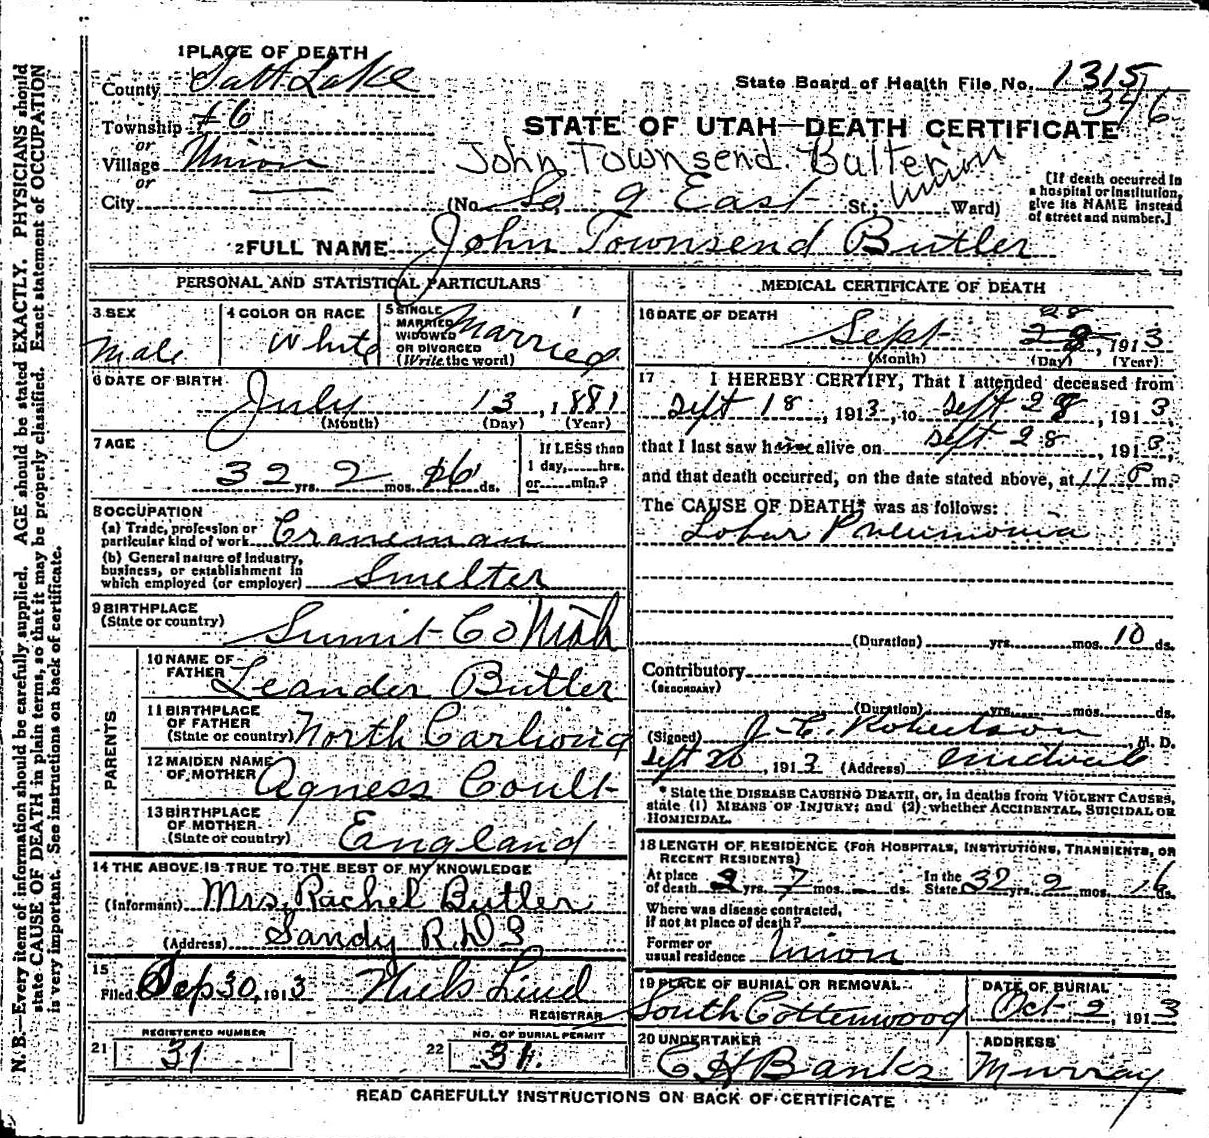 1 PLACE OF DEATH
County Salt Lake
State Board of Health File No. 1315
346
Township #6
or
Village Union
or
City
STATE OF UTAH—DEATH CERTIFICATE
John Townsend Butler
(No. So 9 East St.; Union Ward)
[If death occurred in a hospital or institution, give its NAME instead of street and number.]
2 FULL NAME John Townsend Butler
PERSONAL AND STATISTICAL PARTICULARS
3 SEX
Male
4 COLOR OR RACE
White
5 SINGLE
MARRIED
WIDOWED
OR DIVORCED
(Write the word)
Married
6 DATE OF BIRTH
July 13, 1881
(Month) (Day) (Year)
7 AGE
32 yrs. 2 mos. 16 ds.
If LESS than
1 day,......hrs.
or......min.?
8 OCCUPATION
(a) Trade, profession or
particular kind of work Craneman
(b) General nature of industry,
business, or establishment in
which employed (or employer) Smelter
9 BIRTHPLACE
(State or country) Sumit Co Utah
PARENTS
10 NAME OF
FATHER Leander Butler
11 BIRTHPLACE
OF FATHER
(State or country) North Carlioina
12 MAIDEN NAME
OF MOTHER Agness Coult
13 BIRTHPLACE
OF MOTHER
(State or country) England
14 THE ABOVE IS TRUE TO THE BEST OF MY KNOWLEDGE
(Informant) Mrs. Rachel Butler
(Address) Sandy R.D.
15
Filed Sep 30, 1913 Niels Lind
REGISTRAR
REGISTERED NUMBER
21 31
NO. OF BURIAL PERMIT
22 31
MEDICAL CERTIFICATE OF DEATH
16 DATE OF DEATH
28
Sept 28, 1913
(Month) (Day) (Year)
17 I HEREBY CERTIFY, That I attended deceased from
Sept 18, 1913, to Sept 28, 1913,
that I last saw him alive on Sept 28, 1913,
and that death occurred, on the date stated above, at 11 P m.
The CAUSE OF DEATH* was as follows:
Lobar Pneumonia
(Duration) yrs. mos. 10 ds.
Contributory
(SECONDARY)
(Duration) yrs. mos. ds.
(Signed) J. C. Robertson, M. D.
Sept 30, 1913 (Address) Midvale
* State the DISEASE CAUSING DEATH, or, in deaths from VIOLENT CAUSES,
state (1) MEANS OF INJURY; and (2) whether ACCIDENTAL, SUICIDAL OR
HOMICIDAL.
18 LENGTH OF RESIDENCE (FOR HOSPITALS, INSTITUTIONS, TRANSIENTS, OR
RECENT RESIDENTS)
At place
of death 2 yrs. 7 mos. - ds. In the
State 32 yrs. 2 mos. 16 ds.
Where was disease contracted,
if not at place of death?
Former or
usual residence Union
19 PLACE OF BURIAL OR REMOVAL
South Cottonwood
DATE OF BURIAL
Oct 2, 1913
20 UNDERTAKER
C H Banks
ADDRESS
Murray
READ CAREFULLY INSTRUCTIONS ON BACK OF CERTIFICATE
N. B.—Every item of information should be carefully supplied. AGE should be stated EXACTLY. PHYSICIANS should
state CAUSE OF DEATH in plain terms, so that it may be properly classified. Exact statement of OCCUPATION
is very important. See instructions on back of certificate.